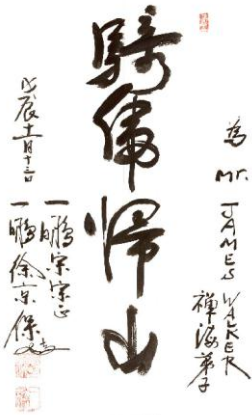 為 Mr. JAMES WALKER
禅海弟子
騎帰山
戊辰十一月十三日
一鵬宗宗正
一鵬徐京保